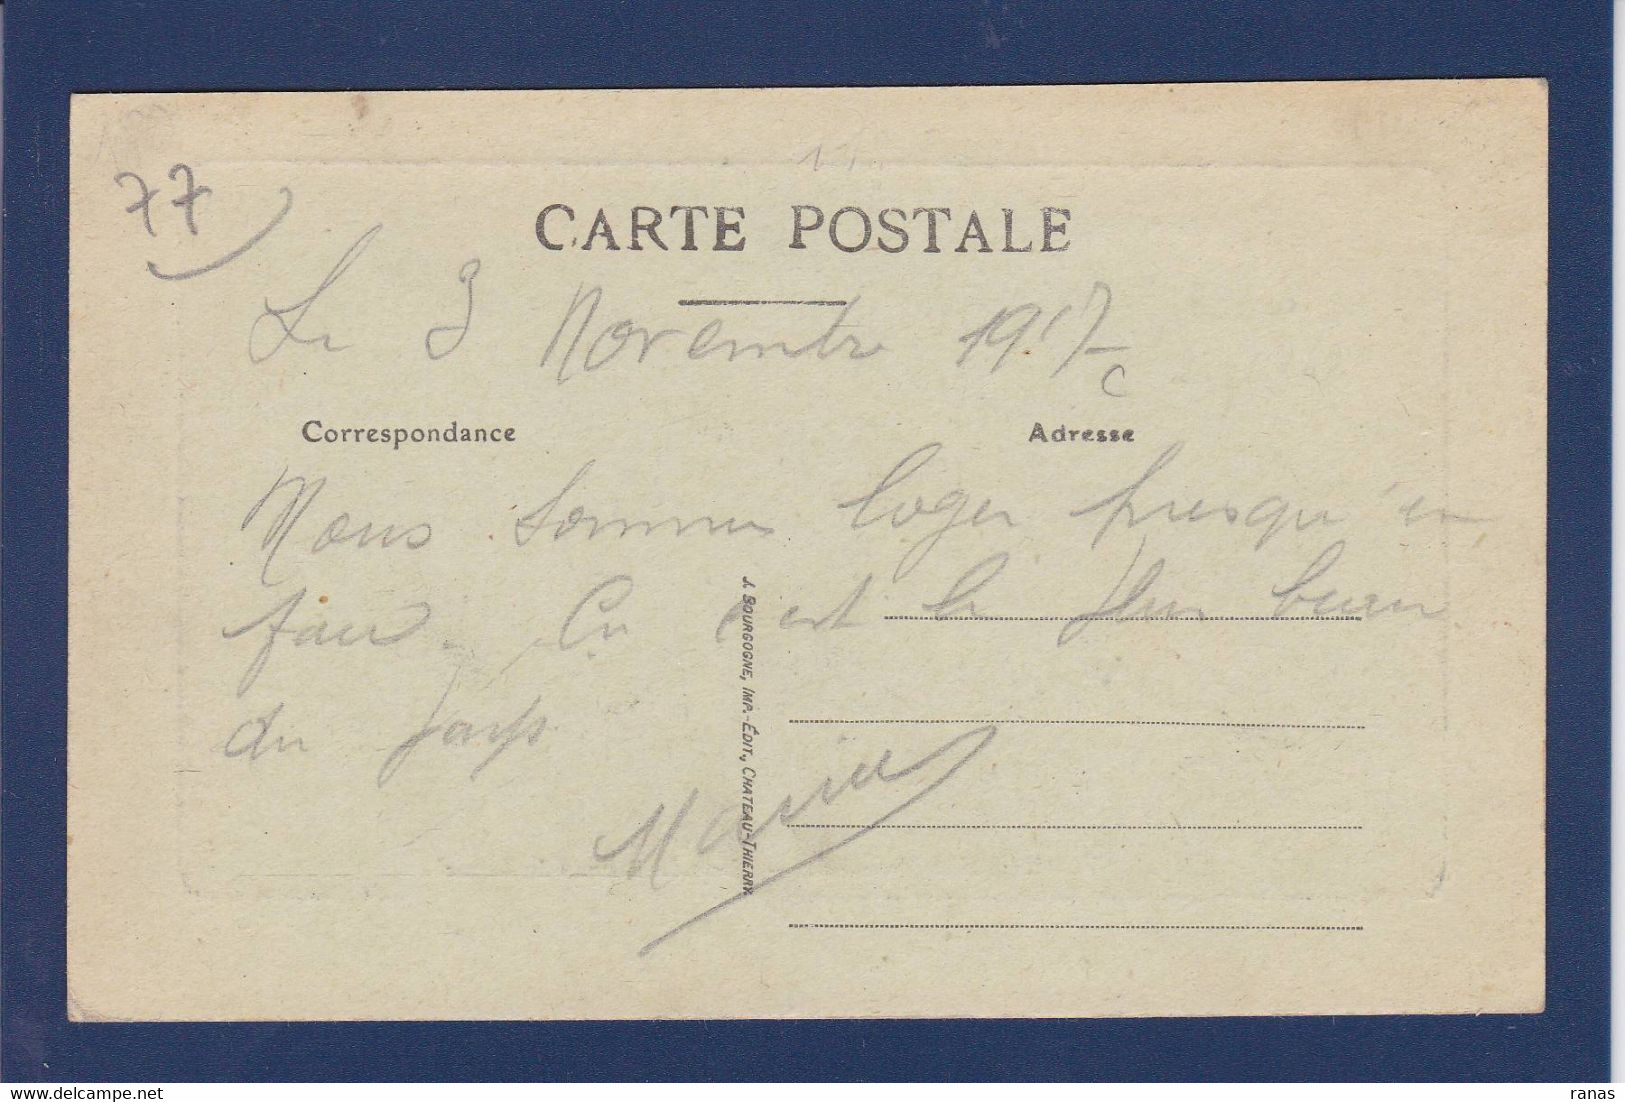 77
CARTE POSTALE
Le 3 Novembre 1917
Correspondance
Adresse
Nous sommes loger presqu'en
face. Ca c'est le plus beau
du pays
J. BOURGOGNE, IMP.-ÉDIT., CHATEAU-THIERRY
delcampe.net
ranas